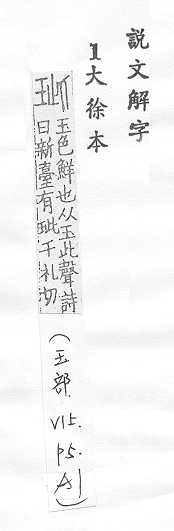 説文解字
1大徐本
玼
玉色鮮也从玉此聲詩
曰新臺有玼千礼切
(玉部. V15. P5. A1)